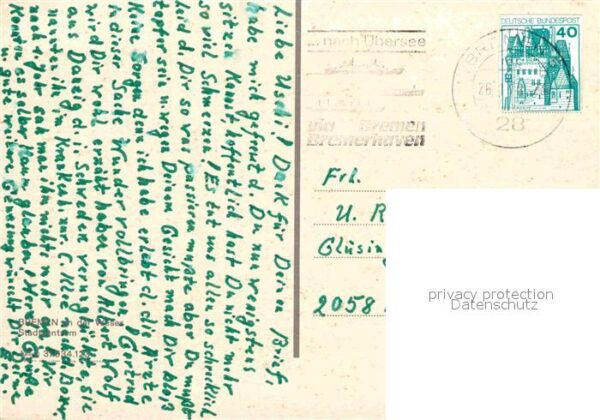 Liebe Uschi! Dank für Deinen Brief.
habe mich gefreut d. Du nun wenigstens
sitzen kannst, hoffentlich hast Du nicht mehr
so viel Schmerzen! Es tut uns allen so schrecklich
leid d Dir so was passieren mußte aber Du mußt
tapfer sein wegen Deinem Gesicht mach Dir
keine Sorgen denn ich habe erlebt d. die Ärzte
in dieser Sache Wunder vollbringen. Gertrud
wird Dir vielleicht erzählt haben von Albert Wolf
aus Danzig d. die Schweden verunglückte, sie
nannten ihn im Krankenhs. nur
nach 1 Jahr sah man ihm nicht mehr Wir
konnten es selber kaum glauben! Herzl. Grüße
u. gute Genesung wünscht Dir
BREMEN an der Weser
Stadtzentrum
... nach Übersee
via Bremen
Bremerhaven
28
DEUTSCHE BUNDESPOST
40
Frl.
U. R
Glüsin
2058
privacy protection
Datenschutz